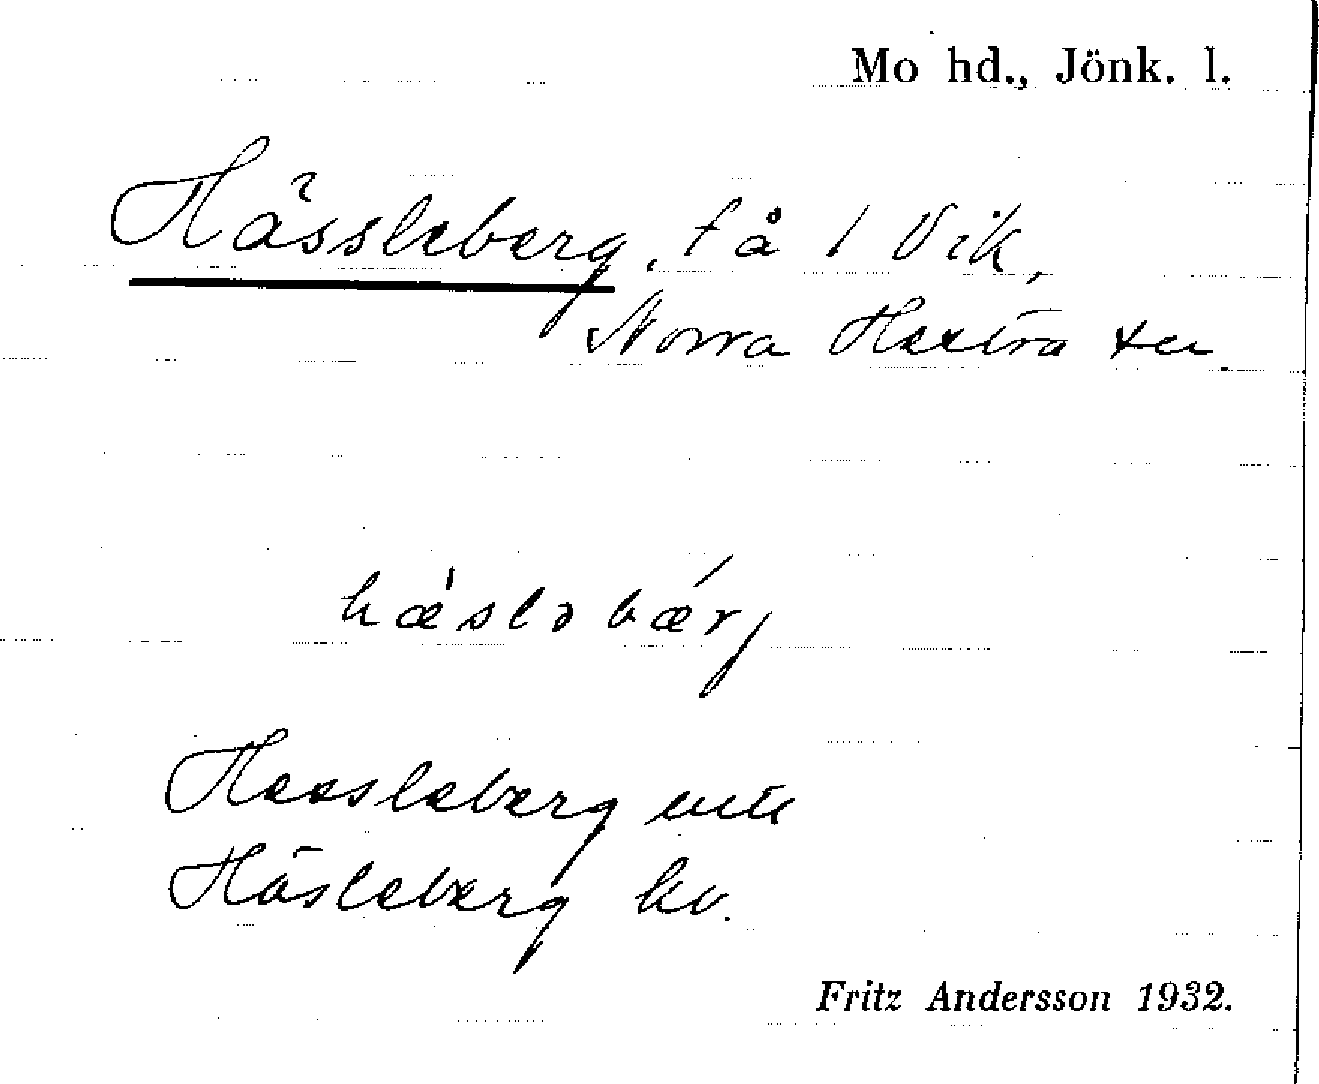 Mo hd., Jönk. l.
Hässleberg, få 1 Vik,
Norra Hestra sn
hæslobærj
Heesleberg
Häsleberg kv.
Fritz Andersson 1932.